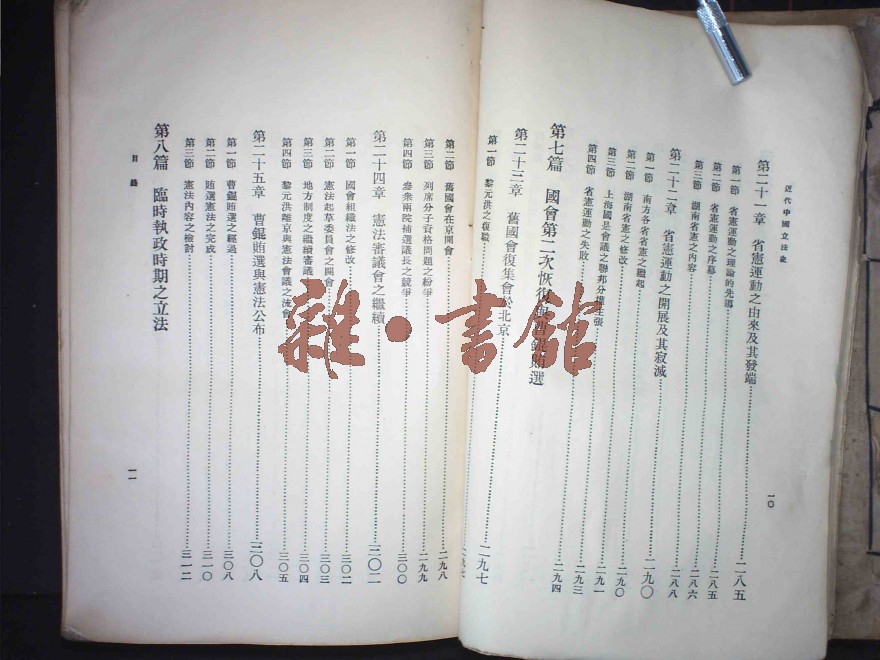 近代中國立法史
一〇
第二十一章 省憲運動之由來及其發端 二八五
第一節 省憲運動之理論的先導 二八五
第二節 省憲運動之序幕 二八五
第三節 湖南省憲之內容 二八六
第二十二章 省憲運動之開展及其寂滅 二八八
第一節 南方各省省憲之繼起 二九〇
第二節 湖南省憲之修改 二九〇
第三節 上海國是會議之聯邦分權主張 二九一
第四節 省憲運動之失敗 二九三
第七篇 國會第二次恢復與曹錕賄選 二九四
第二十三章 舊國會復集會於北京 二九七
第一節 黎元洪之復職
第二節 舊國會在京開會 二九八
第三節 列席分子資格問題之紛爭 二九九
第四節 參衆兩院補選議長之競爭 三〇〇
第二十四章 憲法審議會之繼續 三〇二
第一節 國會組織法之修改 三〇二
第二節 憲法起草委員會之開會 三〇三
第三節 地方制度之繼續審議 三〇四
第四節 黎元洪離京與憲法會議之流會 三〇五
第二十五章 曹錕賄選與憲法公布 三〇八
第一節 曹錕賄選之經過 三〇八
第二節 賄選憲法之完成 三一〇
第三節 憲法內容之檢討 三一二
第八篇 臨時執政時期之立法
目錄
一一
雜·書館